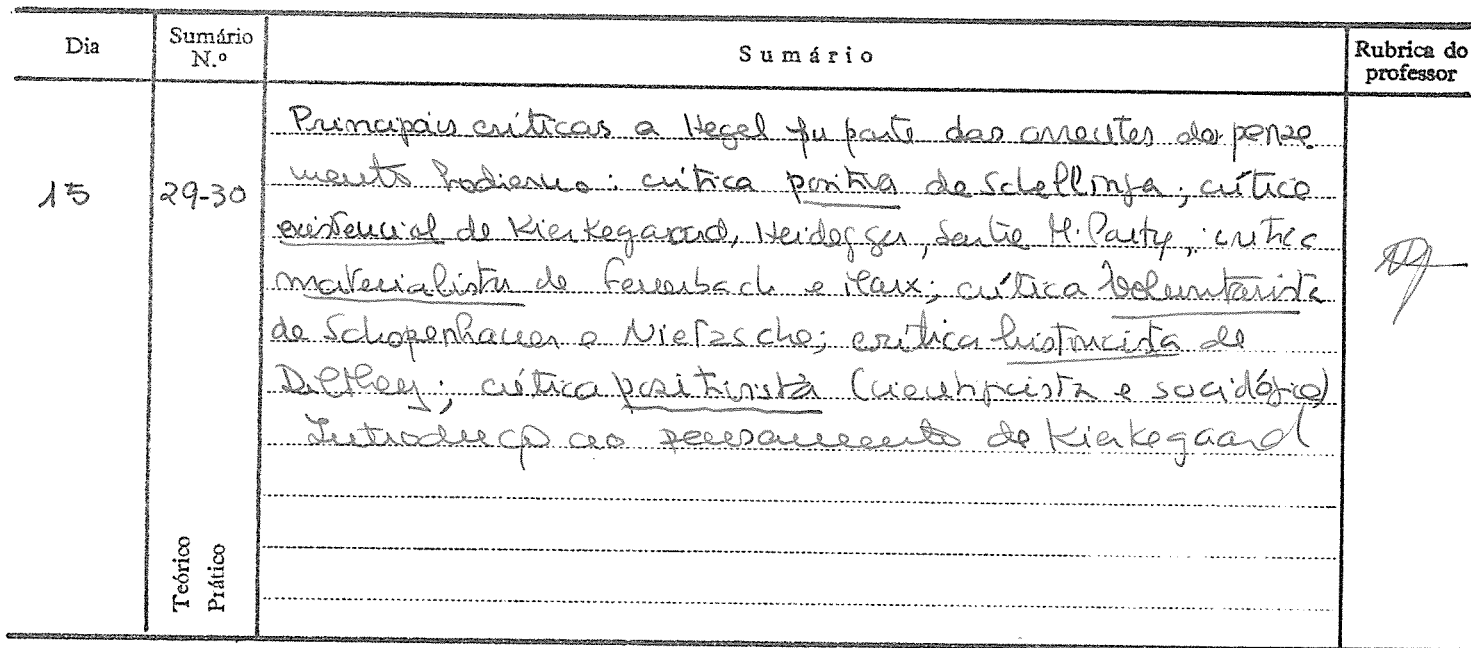 Dia
Sumário N.º
Sumário
Rubrica do professor
15
29-30
Principais críticas a Hegel por parte das correntes do pensa
mento hodierno: crítica positiva de Schellinga; crítica
existencial de Kierkegaard, Heidegger, Sartre M. Ponty; crítica
materialista de Feuerbach e Marx; crítica voluntarista
de Schopenhauer e Nietzsche; crítica historicista de
Dilthey; crítica positivista (cientificista e sociológico)
Introdução ao pensamento de Kierkegaard
Teórico
Prático